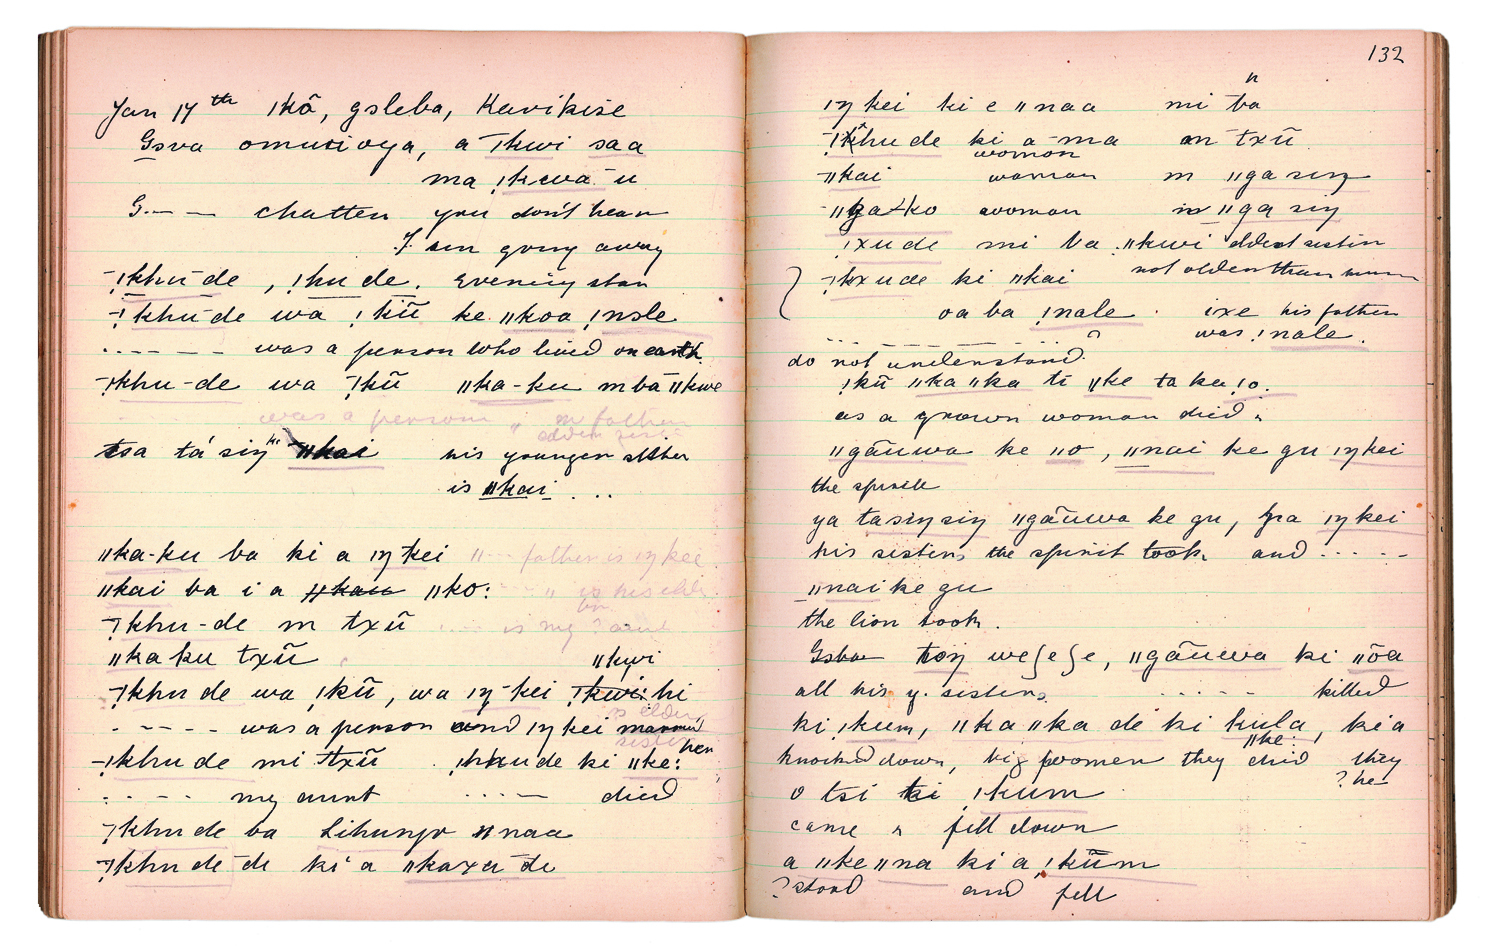 Jan 17th ǀkâ, gsleba, Kavikise
Gsva omutioya, a ꜒ǃkwi saa
ma ˌǃkwa u
G. — — chatten you don't hear
I am going away
꜒ǃkhu de, ǃhu de. Evening star
꜒ǃkhu-de wa ˌǃkũ ke ǁkoa ˌǃnsle
.... — — — was a person who lived on earth
꜒ǃkhu-de wa ꜒ǃkũ ǁka-ku m ba ǁkwe
was a person " father
elder sist
tsa tá siŋ ki ǁkai his younger sister
is ǁkai ...
ǁka-ku ba ki a ǀŋ kei " father is ǀŋ kei
ǁkai ba i a ǁkau ǁko: " is his child
꜒ǃkhu-de m txũ .... is my ? aunt
ǁka ku txũ ǁkwi
꜒ǃkhu de wa ˌǃkũ, wa ǀŋ-kei ꜒ǃkwi hi
. — — — was a person and ǀŋ kei married
is elder
sister
her
꜒ǃkhu de mi txũ . ǃhxu de ki ǁke:
. . . . my aunt .... — died
꜒ǃkhu de ba Lihungo ǁnaa
꜒ǃkhu de de ki a ǁkaxa de
132
n
ǀŋ kei ki e ǁnaa mi ba
꜒ǃkhu de ki a ma m txũ
woman
ǁkai woman m ǁga siŋ
ǁga ko woman m ǁga siŋ
ˌǃxu de mi ba ǁkwi eldest sister
꜒ǃxu de ki ǁkai not older than mum
oa ba ˌǃnale . ixe his father
— — — — — — — . . was ˌǃnale.
do not understand.
ˌǃkũ ǁka ǁka ti ǁke ta ka ˌǃo.
as a grown woman died
ǁgãuwa ke ǁo, ǁnai ke gu ǀŋ kei
the spirit
ya ta siŋ siŋ ǁgãuwa ke gu, ǀŋ kei
his sisters the spirit took and .....-
ǁnai ke gu
the lion took.
Gsba toŋ weʃeʃe, ǁgãuwa ki ǁõa
all his y. sisters ..... — killed
ki ˌǃkum, ǁka ǁka de ki kula, ki a
ǁke
knocked down, big women they died they
? he
o tsi ki ˌǃkum
came & fell down
a ǁke ǁna ki a ˌǃkũm
? stood and fell